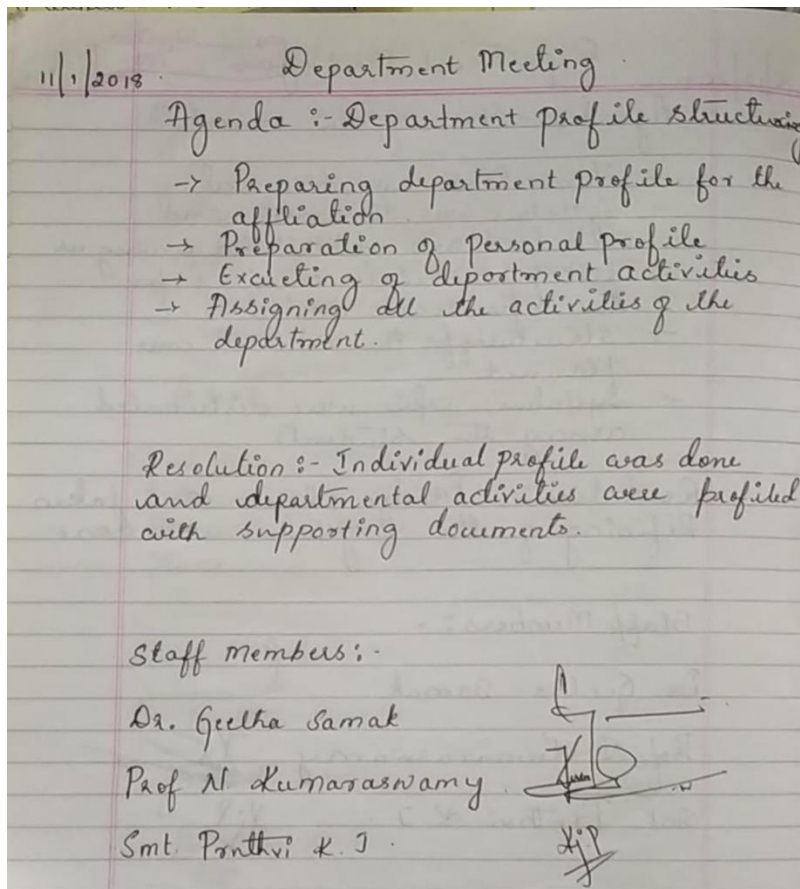 11/1/2018. Department Meeting.
Agenda :- Department profile structuring
-> Preparing department profile for the
affliation
-> Preparation of personal profile
-> Excueting of department activities
-> Assigning all the activities of the
department.
Resolution :- Individual profile was done
and departmental activities were profiled
with supporting documents.
Staff members :-
Dr. Geetha Samak
Prof N Kumaraswamy
Smt. Pruthvi K.J.